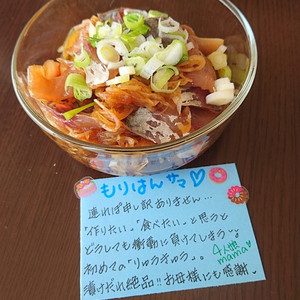 もりはんサマ♡
連れ申し訳ありません…
"作りたい""食べたい"と思うと
どうしても衝動に負けてしまう
初めての"りゅうきゅう"。
漬けだれ絶品!!お母様にも感謝
4人娘
mama